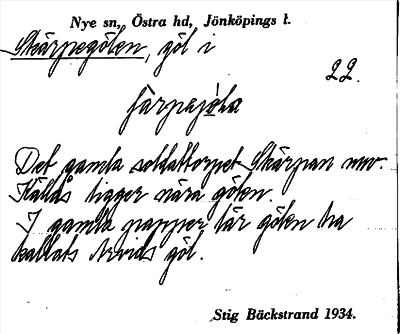 Nye sn., Östra hd, Jönköpings l.
Skärpegölen, göl i
22.
Det gamla soldattorpet Skärpan
ligger nära gölen.
I gamla papper lär gölen ha
kallats Arvids göl.
Stig Bäckstrand 1934.